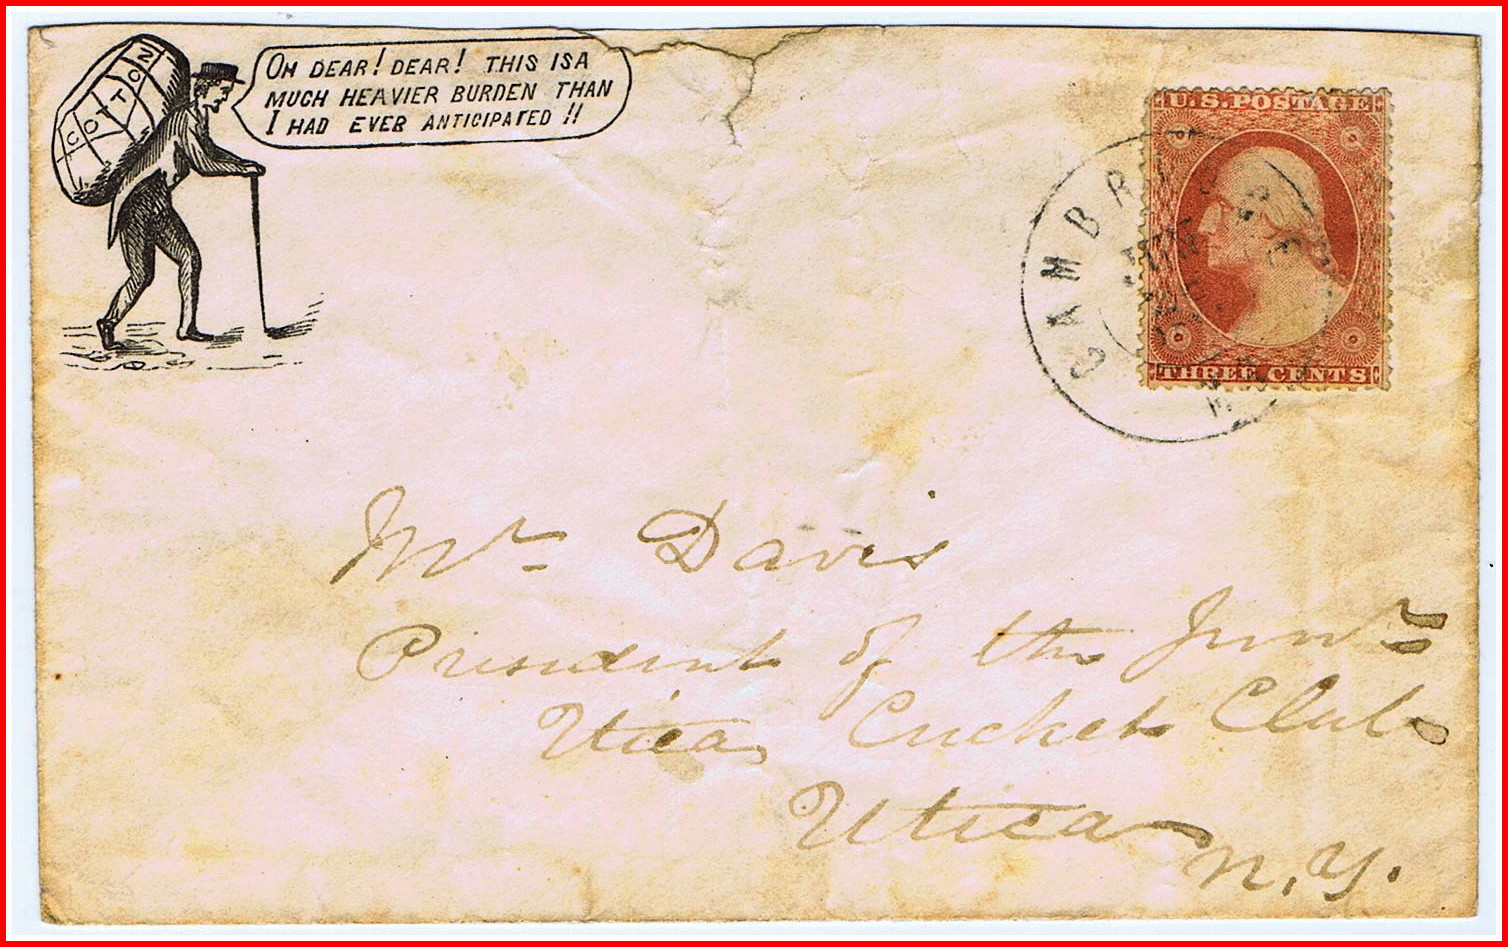 COTTON
OH DEAR! DEAR! THIS IS A
MUCH HEAVIER BURDEN THAN
I HAD EVER ANTICIPATED!!
U.S. POSTAGE
THREE CENTS
CAMBRI
Mr Davis
President of the Junr
Utica Cricket Club
Utica
N.Y.